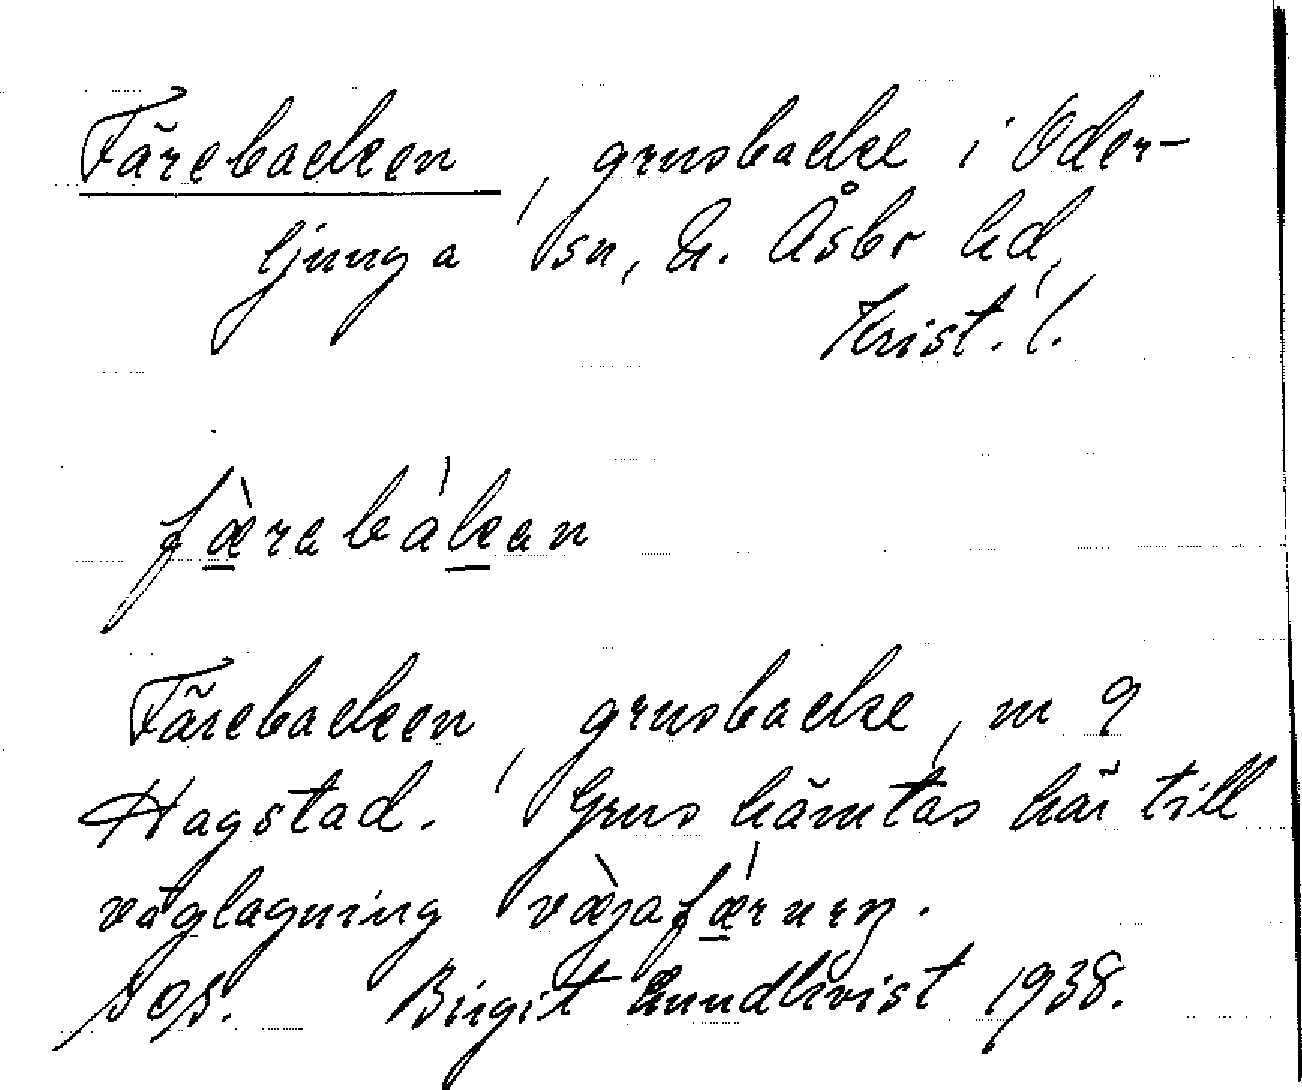 Färebacken, grusbacke i Oder-
ljunga sn, N. Åsbo hd,
Krist. l.
fæ̀rabákan
Färebacken, grusbacke, nr 9
Hagstad. Grus hämtas här till
väglagning væ̀jafǽruŋ.
Birgit Lundkvist 1938.